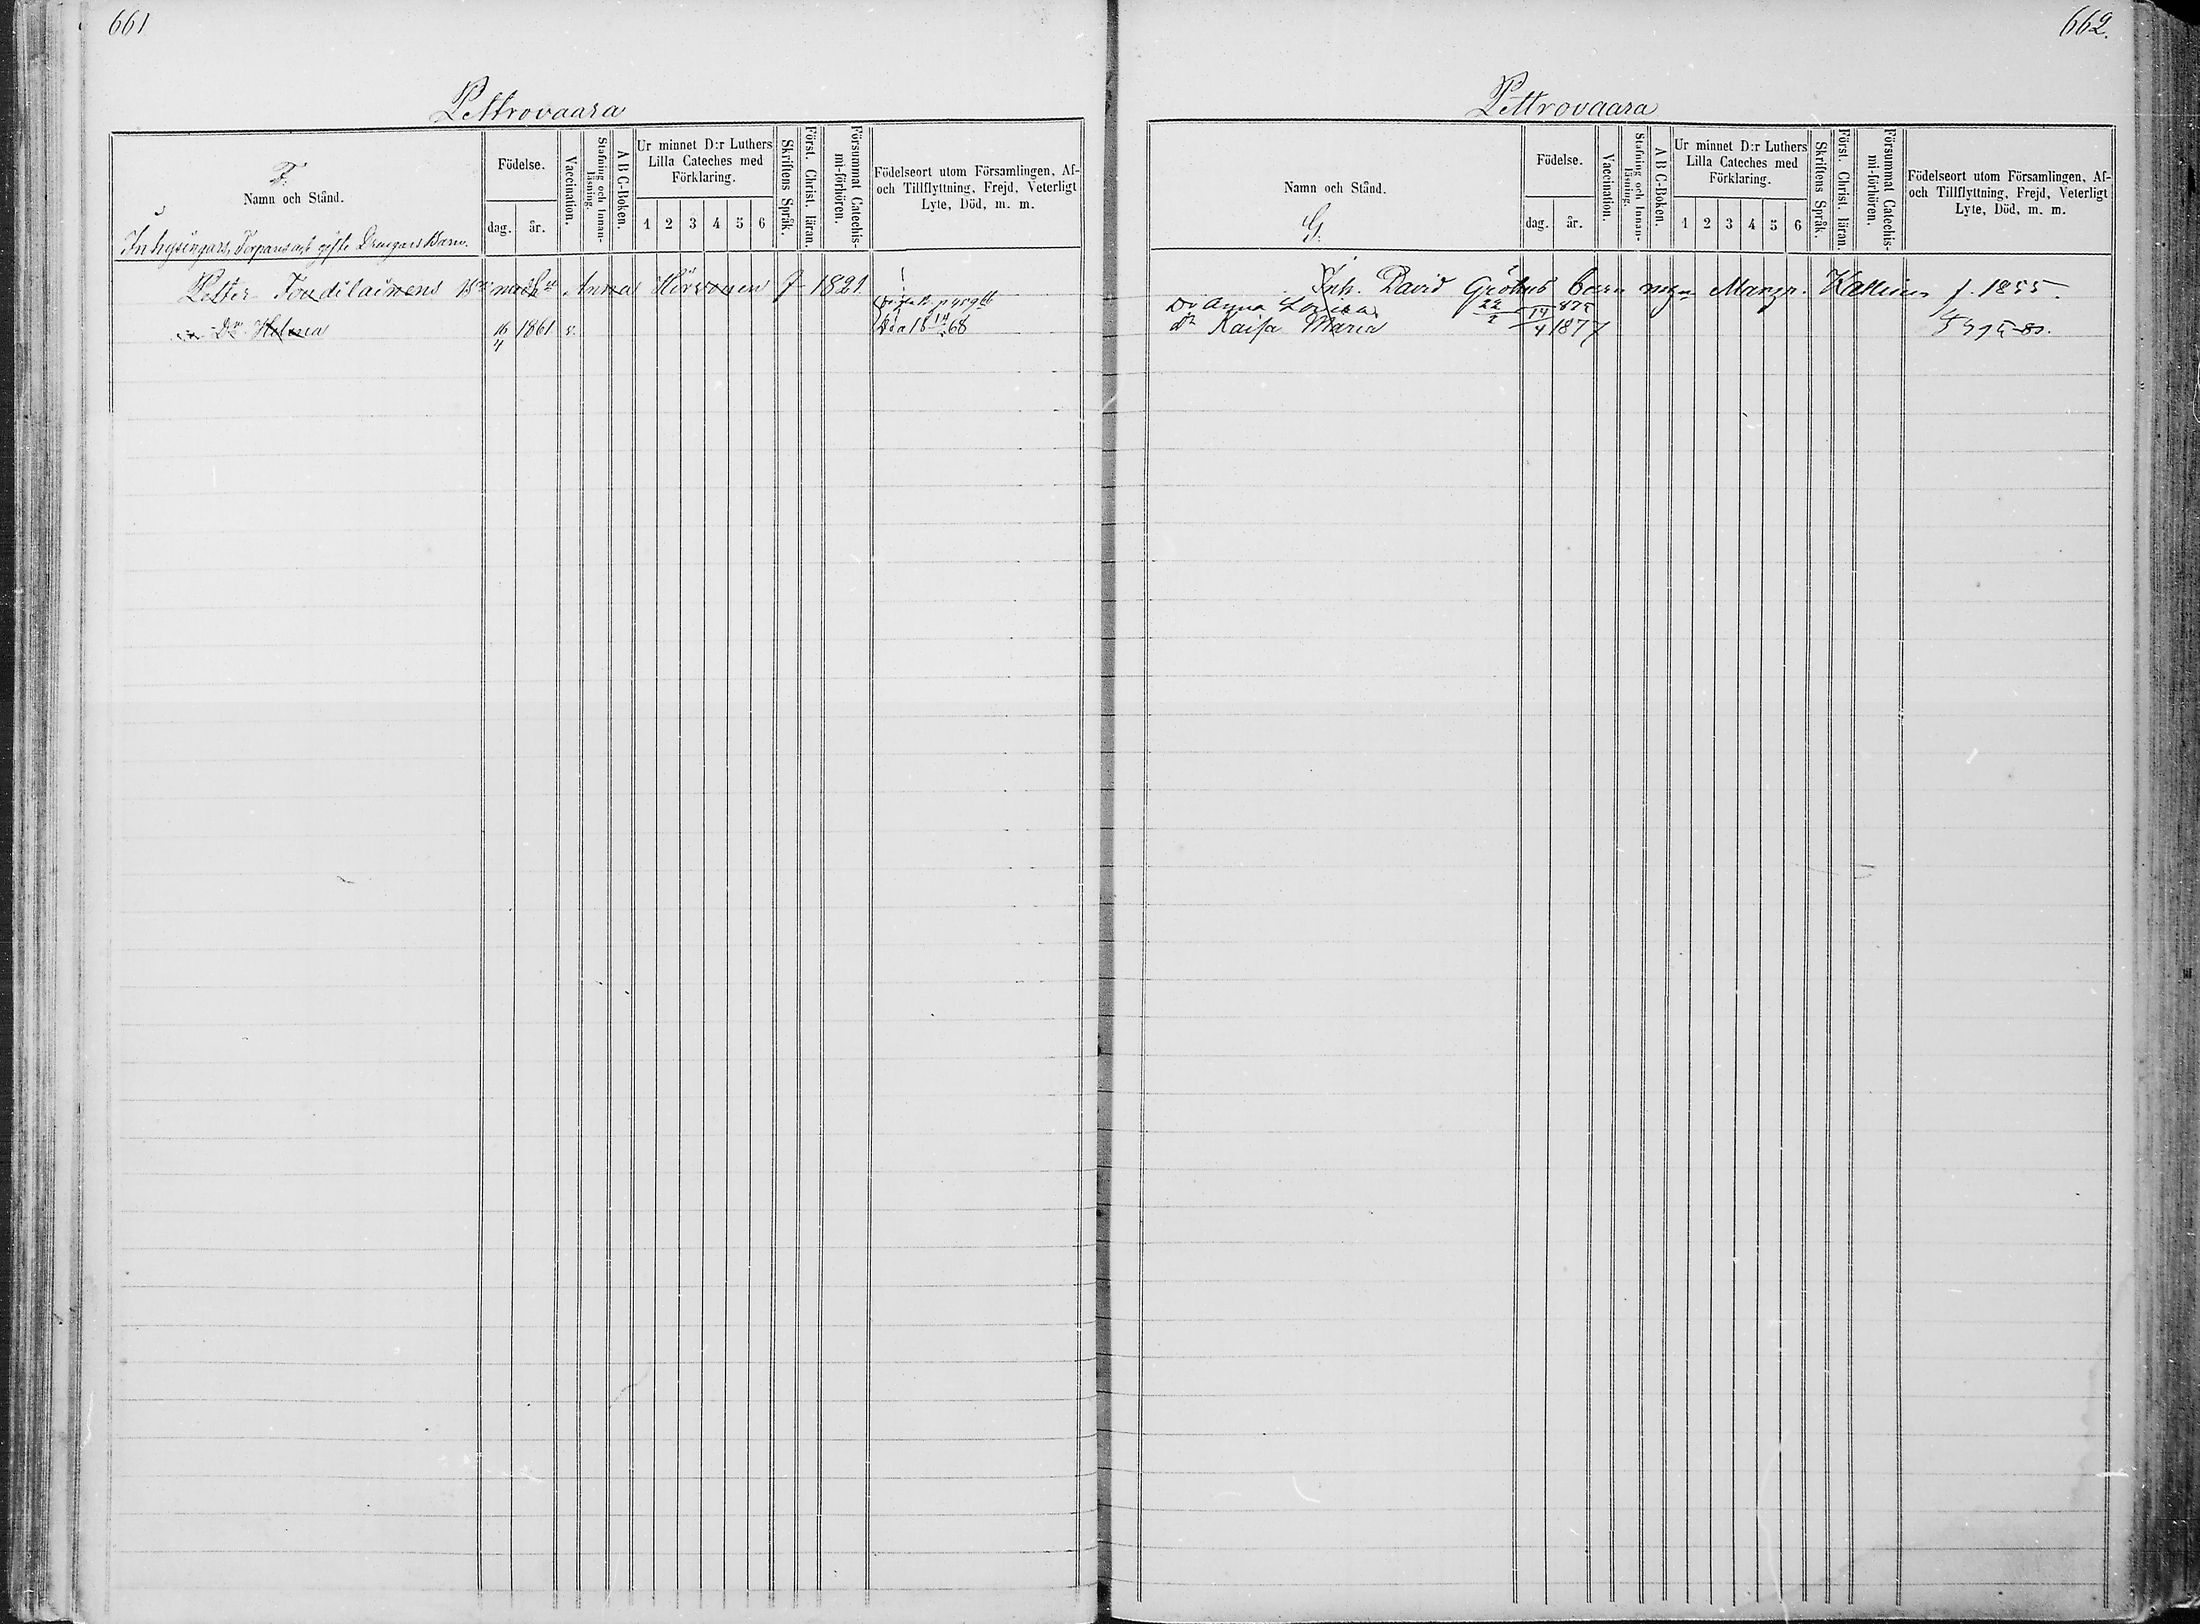 661
Pettrovaara
F.
Namn och Stånd.
Födelse.
dag.
år.
Vaccination.
Stafning och Innan-
läsning.
A B C-Boken.
Ur minnet D:r Luthers
Lilla Cateches med
Förklaring.
1 2 3 4 5 6
Skriftens Språk.
Först. Christ. läran.
Försummat Catechis-
mi-förhören.
Födelseort utom Församlingen, Af-
och Tillflyttning, Frejd, Veterligt
Lyte, Död, m. m.
Inhysingars, Torpares och gifte Drengars Barn.
Petter Fondilainens Anna Hirvonen f. 1821
Dr. Helena 16/4 1861 v. Död 18 14/ 68
662.
Pettrovaara
Namn och Stånd.
G.
Födelse.
dag.
år.
Vaccination.
Stafning och Innan-
läsning.
A B C-Boken.
Ur minnet D:r Luthers
Lilla Cateches med
Förklaring.
1 2 3 4 5 6
Skriftens Språk.
Först. Christ. läran.
Försummat Catechis-
mi-förhören.
Födelseort utom Församlingen, Af-
och Tillflyttning, Frejd, Veterligt
Lyte, Död, m. m.
Inh. David Gröhns barn Margr. f. 1855.
Dr Anna Lovisa 22/2 875
Dr Kaisa Maria 14/4 1877